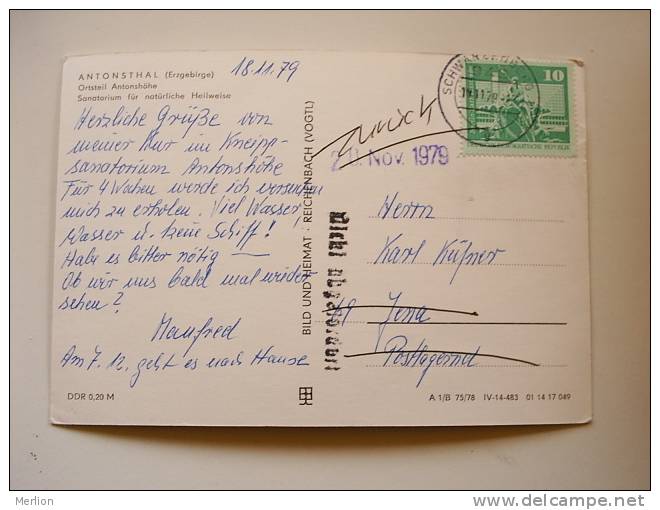 18.11.79
ANTONSTHAL (Erzgebirge)
Ortsteil Antonshöhe
Sanatorium für natürliche Heilweise
Herzliche Grüße von
meiner Kur im Kneipp-
sanatorium Antonshöhe
Für 4 Wochen werde ich versuchen
mich zu erholen. Viel Wasser,
Wasser u. keine Schiff!
Habe es bitter nötig —
Ob wir uns bald mal wieder
sehen?
Manfred
Am 7.12. geht es nach Hause
DDR 0,20 M
BILD UND HEIMAT · REICHENBACH (VOGTL)
zurück
20. Nov. 1979
Nicht abgefordert
10
DEUTSCHE DEMOKRATISCHE REPUBLIK
Herrn
Karl Küfner
69 Jena
Postlagernd
A 1/B 75/78 IV-14-483 01 14 17 049
Merlion
http://www.delcampe.net